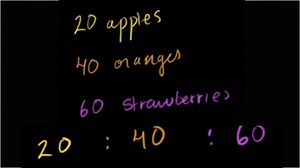 20 apples
40 oranges
60 strawberries
20 : 40 : 60